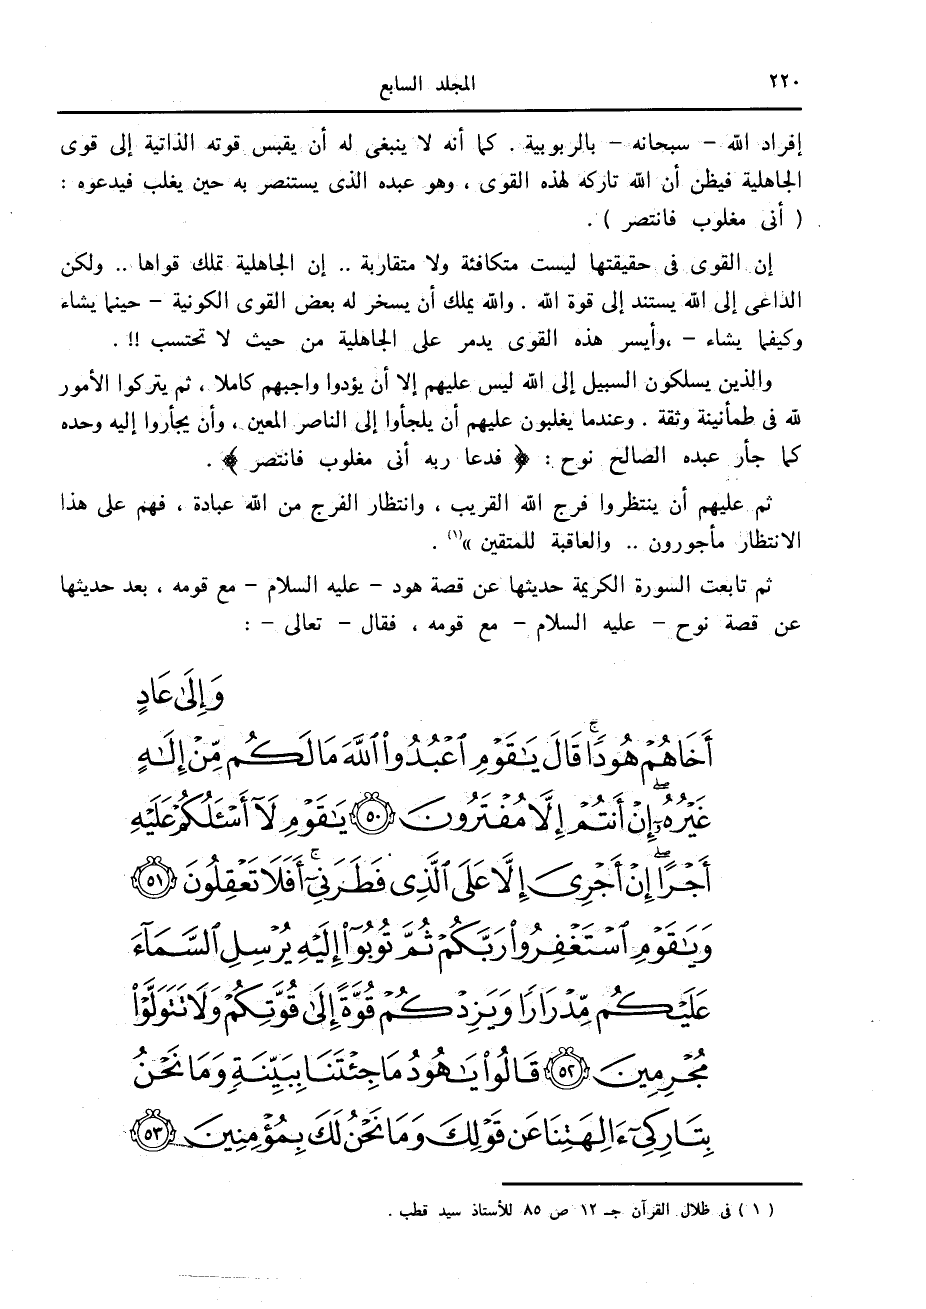 ٢٢٠
المجلد السابع
إفراد الله – سبحانه – بالربوبية . كما أنه لا ينبغى له أن يقبس قوته الذاتية إلى قوى
الجاهلية فيظن أن الله تاركه لهذه القوى ، وهو عبده الذى يستنصر به حين يغلب فيدعوه :
( أنى مغلوب فانتصر ) .
إن القوى فى حقيقتها ليست متكافئة ولا متقاربة .. إن الجاهلية تملك قواها .. ولكن
الداعى إلى الله يستند إلى قوة الله . والله يملك أن يسخر له بعض القوى الكونية – حينما يشاء
وكيفما يشاء – ،وأيسر هذه القوى يدمر على الجاهلية من حيث لا تحتسب !! .
والذين يسلكون السبيل إلى الله ليس عليهم إلا أن يؤدوا واجبهم كاملا ، ثم يتركوا الأمور
لله فى طمأنينة وثقة . وعندما يغلبون عليهم أن يلجأوا إلى الناصر المعين ، وأن يجأروا إليه وحده
كما جأر عبده الصالح نوح : ﴿ فدعا ربه أنى مغلوب فانتصر ﴾ .
ثم عليهم أن ينتظروا فرج الله القريب ، وانتظار الفرج من الله عبادة ، فهم على هذا
الانتظار مأجورون .. والعاقبة للمتقين »(١) .
ثم تابعت السورة الكريمة حديثها عن قصة هود – عليه السلام – مع قومه ، بعد حديثها
عن قصة نوح – عليه السلام – مع قومه ، فقال – تعالى – :
وَإِلَىٰ عَادٍ
أَخَاهُمْ هُودًاۚ قَالَ يَٰقَوْمِ ٱعْبُدُوا۟ ٱللَّهَ مَا لَكُم مِّنْ إِلَٰهٍ
غَيْرُهُۥٓۖ إِنْ أَنتُمْ إِلَّا مُفْتَرُونَ ﴿٥٠﴾ يَٰقَوْمِ لَآ أَسْـَٔلُكُمْ عَلَيْهِ
أَجْرًاۖ إِنْ أَجْرِىَ إِلَّا عَلَى ٱلَّذِى فَطَرَنِىٓۚ أَفَلَا تَعْقِلُونَ ﴿٥١﴾
وَيَٰقَوْمِ ٱسْتَغْفِرُوا۟ رَبَّكُمْ ثُمَّ تُوبُوٓا۟ إِلَيْهِ يُرْسِلِ ٱلسَّمَآءَ
عَلَيْكُم مِّدْرَارًا وَيَزِدْكُمْ قُوَّةً إِلَىٰ قُوَّتِكُمْ وَلَا تَتَوَلَّوْا۟
مُجْرِمِينَ ﴿٥٢﴾ قَالُوا۟ يَٰهُودُ مَا جِئْتَنَا بِبَيِّنَةٍ وَمَا نَحْنُ
بِتَارِكِىٓ ءَالِهَتِنَا عَن قَوْلِكَ وَمَا نَحْنُ لَكَ بِمُؤْمِنِينَ ﴿٥٣﴾
( ١ ) فى ظلال القرآن جـ ١٢ ص ٨٥ للأستاذ سيد قطب .